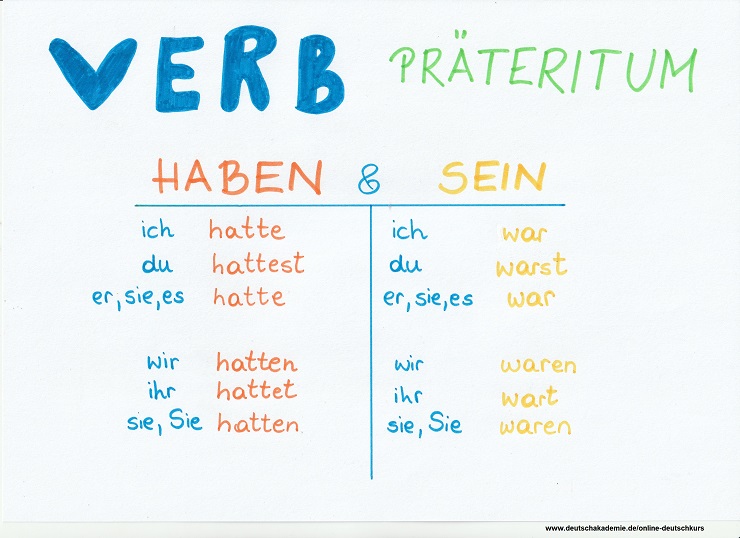 VERB PRÄTERITUM
HABEN & SEIN
ich hatte ich war
du hattest du warst
er, sie, es hatte er, sie, es war
wir hatten wir waren
ihr hattet ihr wart
sie, Sie hatten sie, Sie waren
www.deutschakademie.de/online-deutschkurs